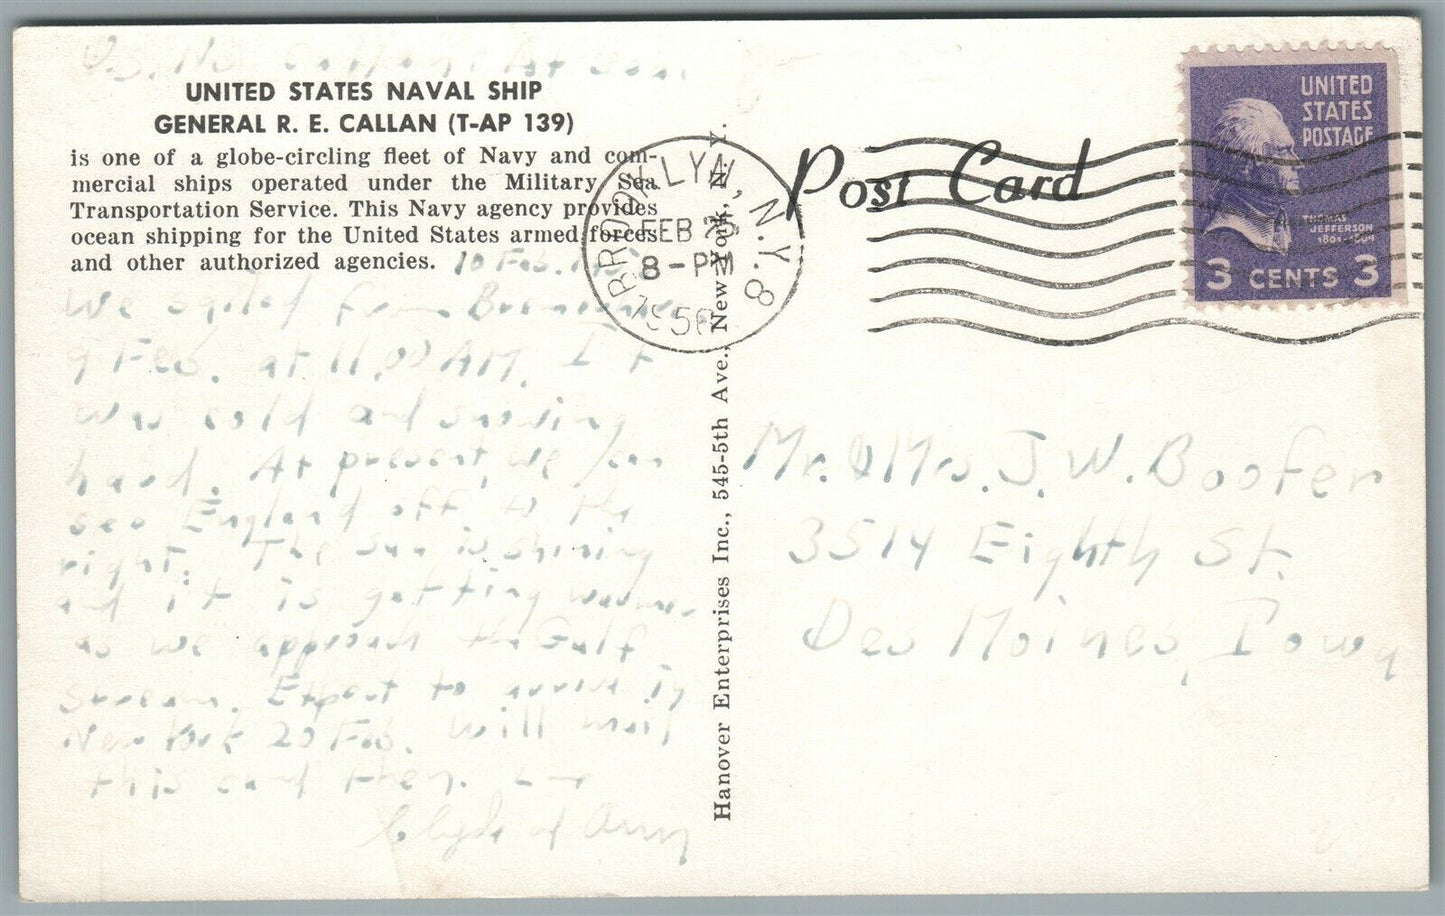 UNITED STATES NAVAL SHIP
GENERAL R. E. CALLAN (T-AP 139)
is one of a globe-circling fleet of Navy and com-
mercial ships operated under the Military Sea
Transportation Service. This Navy agency provides
ocean shipping for the United States armed forces
and other authorized agencies.
10 Feb.
We sailed from
9 Feb. at 11.00 AM. It
was cold and snowing
hard. At present, we can
see England off to the
right. The sun is shining
and it is getting warmer
as we approach the Gulf
Stream. Expect to arrive in
New York 20 Feb. Will mail
this card then. Love
Clyde
Hanover Enterprises Inc., 545-5th Ave., New York, N. Y.
Post Card
BROOKLYN, N.Y. 8
FEB 25
8-PM
1956
UNITED
STATES
POSTAGE
THOMAS
JEFFERSON
1801-1809
3 CENTS 3
Mr. & Mrs. J. W. Boofer
3514 Eighth St.
Des Moines, Iowa